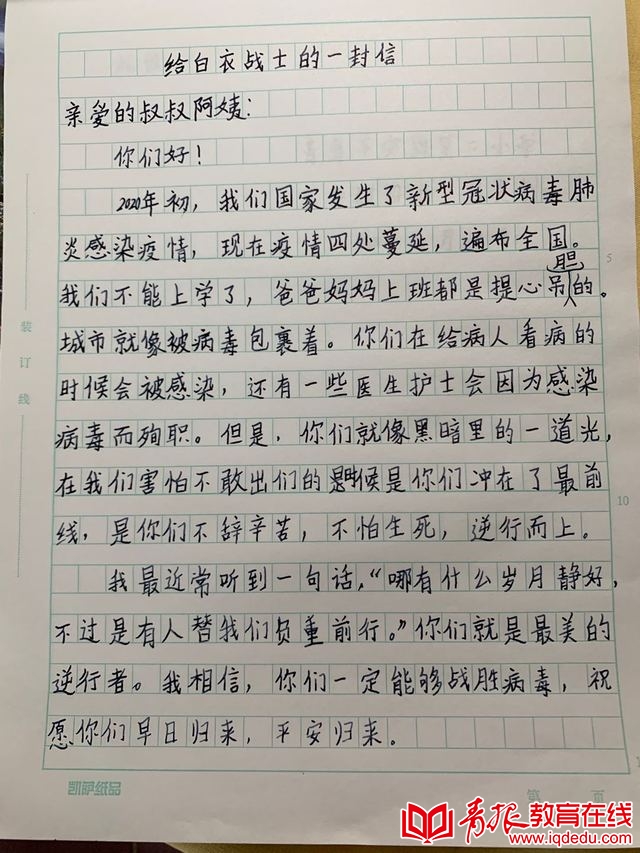 给白衣战士的一封信
亲爱的叔叔阿姨：
你们好！
2020年初，我们国家发生了新型冠状病毒肺
炎感染疫情，现在疫情四处蔓延，遍布全国。
我们不能上学了，爸爸妈妈上班都是提心吊胆的。
城市就像被病毒包裹着。你们在给病人看病的
时候会被感染，还有一些医生护士会因为感染
病毒而殉职。但是，你们就像黑暗里的一道光，
在我们害怕不敢出们的时候是你们冲在了最前
线，是你们不辞辛苦，不怕生死，逆行而上。
我最近常听到一句话，“哪有什么岁月静好，
不过是有人替我们负重前行。”你们就是最美的
逆行者。我相信，你们一定能够战胜病毒，祝
愿你们早日归来，平安归来。
装订线
5
10
凯萨纸品
第 页
青报教育在线
www.iqdedu.com